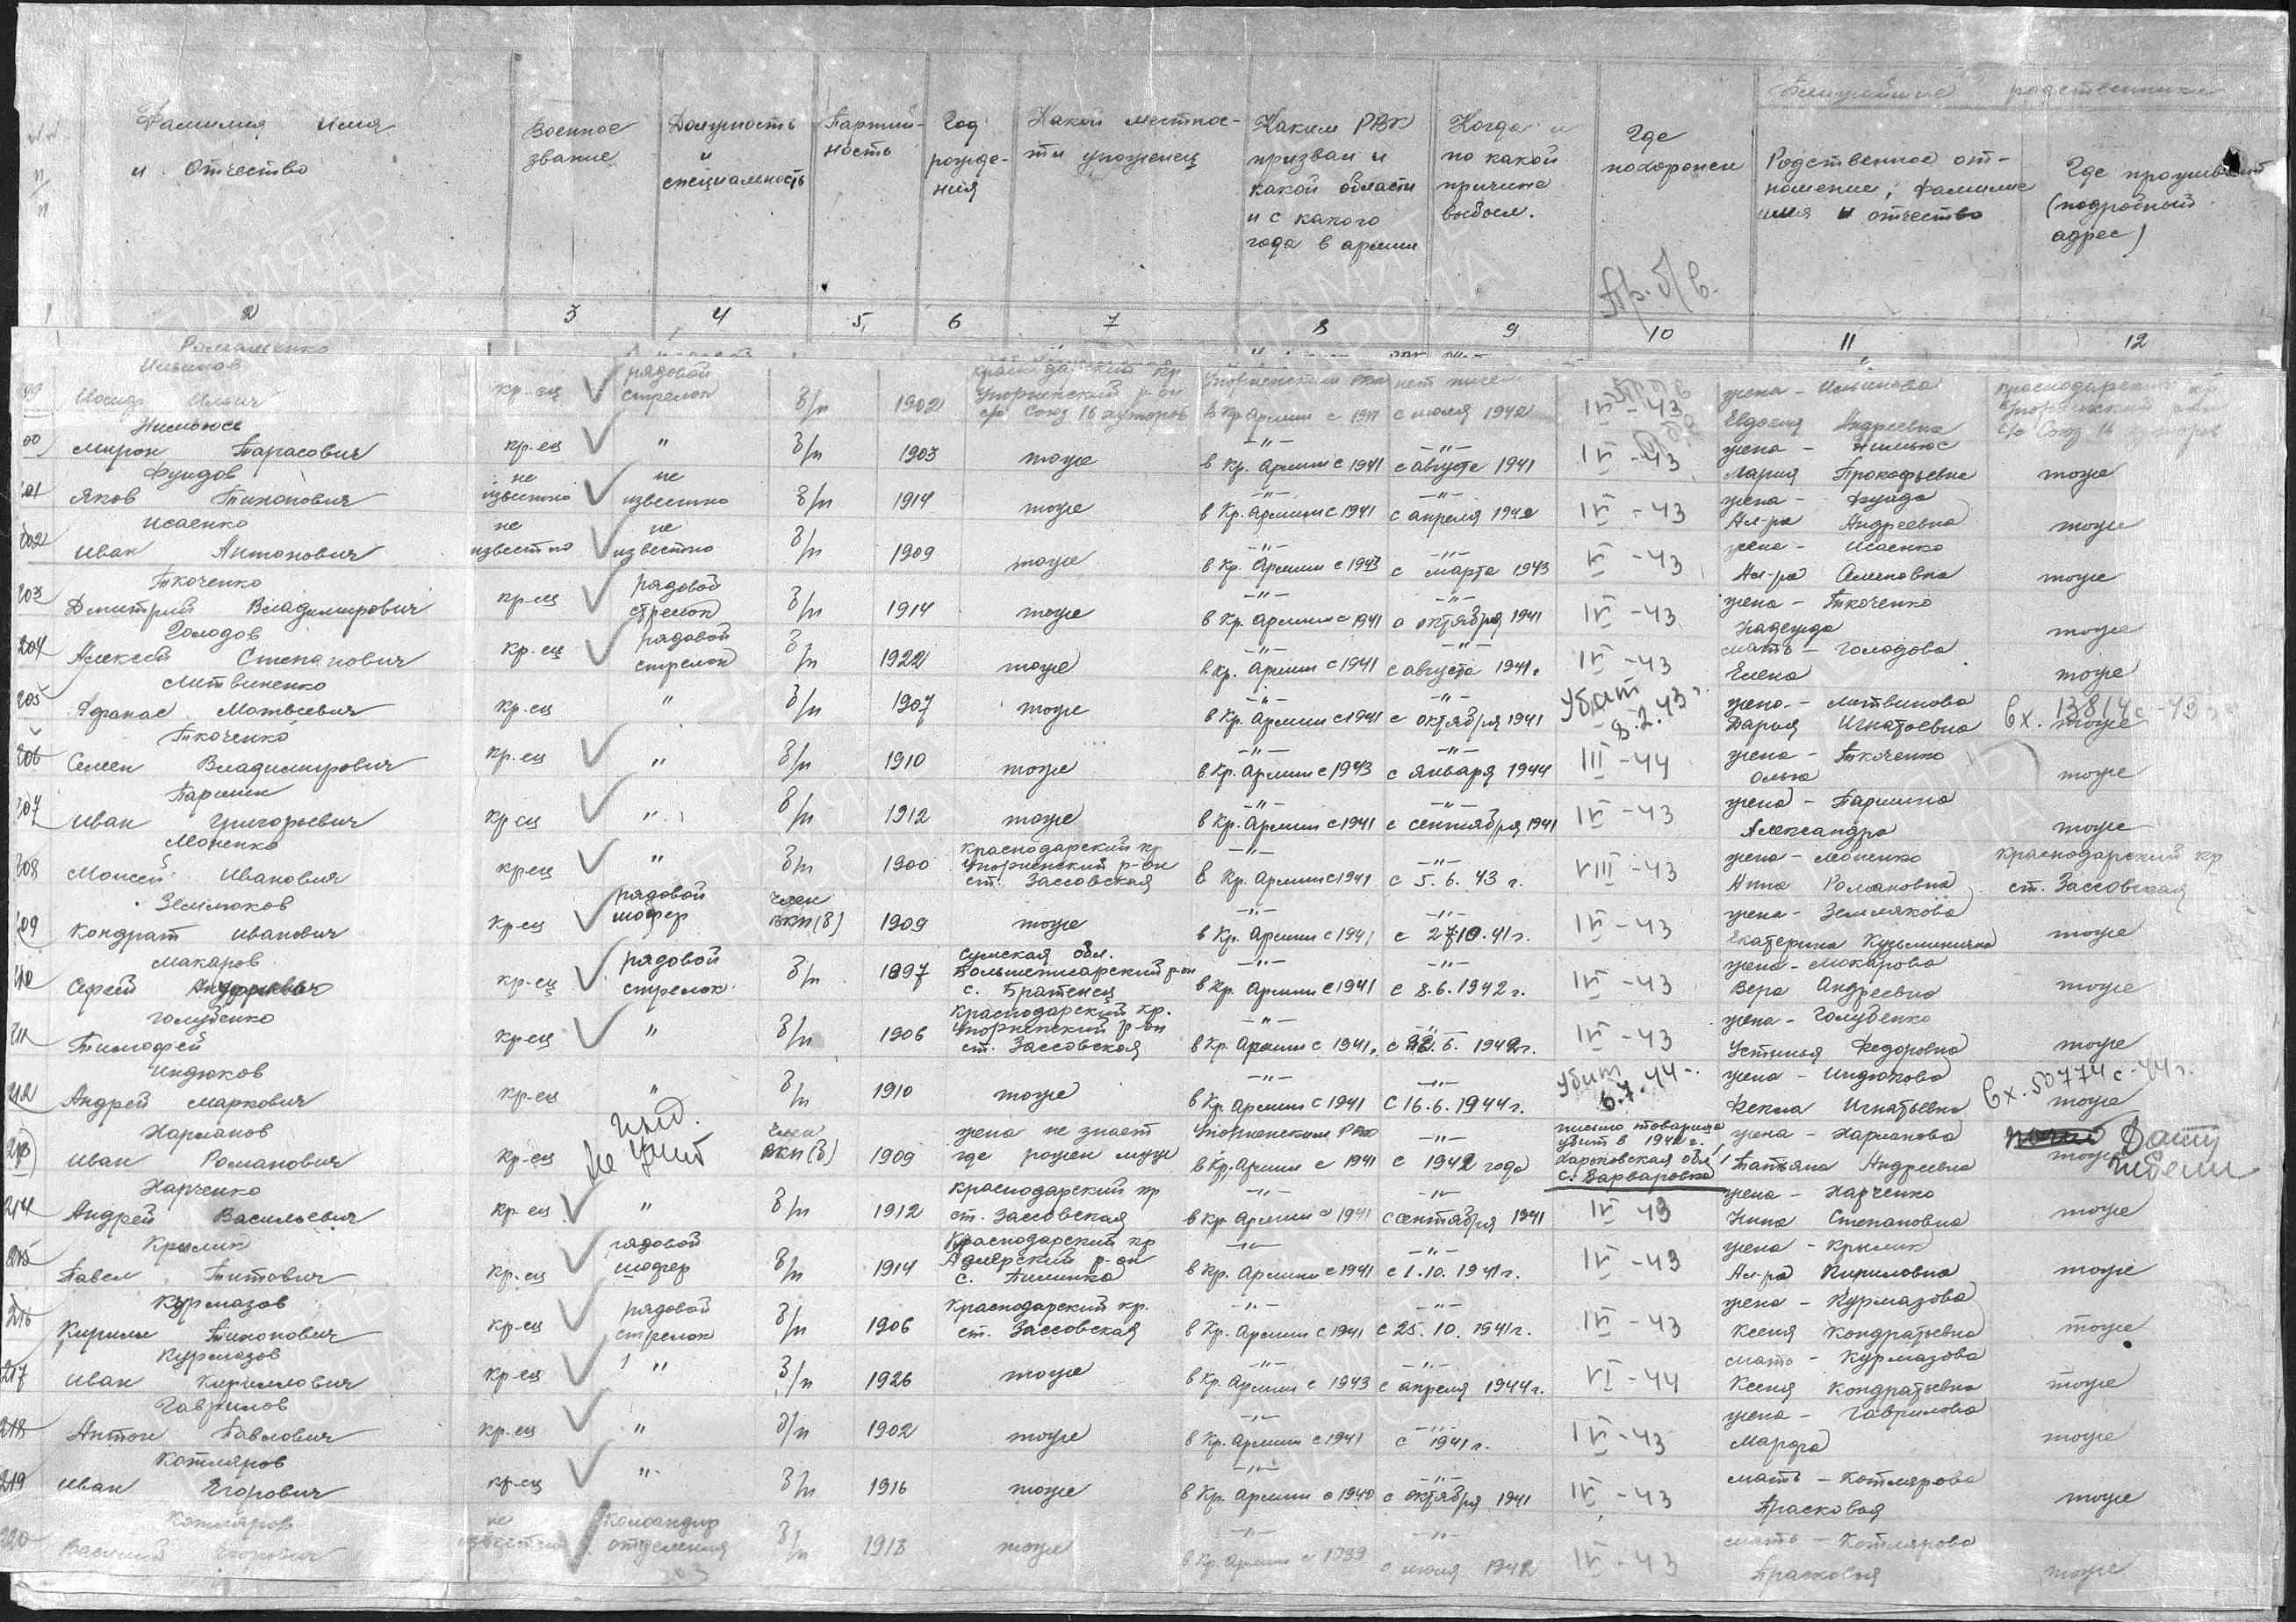 Ближайшие родственники
№№ п/п
Фамилия Имя и Отчество
Военное звание
Должность и специальность
Партийность
Год рождения
Какой местности уроженец
Каким РВК призван и какой области и с какого года в армии
Когда и по какой причине выбыл.
Где похоронен
Родственное отношение, фамилия имя и отчество
Где проживает (подробный адрес)
Пр. б/в.
1 2 3 4 5 6 7 8 9 10 11 12
Романенко
Ильинов Ильич кр-ец рядовой стрелок б/п 1902 Краснодарский кр Упорненский р-он с/с Союз 16 хуторов Упорненским РВК в Кр. Армии с 1941 нет писем с июля 1942 IV-43 жена - Ильинова Евдокия Андреевна Краснодарский кр Упорненский р-он с/с Союз 16 хуторов
200 Мирон Тарасович кр-ец " б/п 1903 тоже -"- в Кр. Армии с 1941 -"- с августа 1941 IV-43 жена - Мария Прокофьевна тоже
201 Фундов Яков Тихонович не известно не известно б/п 1914 тоже -"- в Кр. Армии с 1941 -"- с апреля 1942 IV-43 жена - Ал-ра Андреевна тоже
202 Исаенко Иван Антонович не известно не известно б/п 1909 тоже -"- в Кр. Армии с 1943 -"- с марта 1943 VI-43 жена - Исаенко Ал-ра Семеновна тоже
203 Ткоченко Дмитрий Владимирович кр-ец рядовой стрелок б/п 1914 тоже -"- в Кр. Армии с 1941 -"- с октября 1941 IV-43 жена - Ткоченко Надежда тоже
204 Голодов Алексей Степанович кр-ец рядовой стрелок б/п 1922 тоже -"- в Кр. Армии с 1941 -"- с августа 1941г. IV-43 мать - Голодова Елена тоже
205 Литвиненко Афанас Матвеевич кр-ец " б/п 1907 тоже -"- в Кр. Армии с 1941 -"- с октября 1941 Убит 8.2.43г. жена - Литвинова Дарья Игнатьевна Вх. 13814с-43 тоже
206 Ткоченко Семен Владимирович кр-ец " б/п 1910 тоже -"- в Кр. Армии с 1943 -"- с января 1944 III-44 жена - Ткоченко Ольга тоже
207 Паршин Иван Григорьевич кр-ец " б/п 1912 тоже -"- в Кр. Армии с 1941 -"- с сентября 1941 IV-43 жена - Паршина Александра тоже
208 Моненко Моисей Иванович кр-ец " б/п 1900 Краснодарский кр Упорненский р-он ст. Зассовская -"- в Кр. Армии с 1941 -"- с 5.6.43 г. VIII-43 жена - Моненко Анна Романовна Краснодарский кр ст. Зассовская
209 Земляков Кондрат Иванович кр-ец рядовой шофер член ВКП(б) 1909 тоже -"- в Кр. Армии с 1941 -"- с 27 10.41г. IV-43 жена - Землякова Екатерина Кузьминична тоже
210 Макаров Сергей кр-ец рядовой стрелок б/п 1897 Сумская обл. Больше р-он с. Братенец -"- в Кр. Армии с 1941 -"- с 8.6.1942г. IV-43 жена - Макарова Вера Андреевна тоже
211 Голубенко Тимофей кр-ец " б/п 1906 Краснодарский кр. Упорненский р-он ст. Зассовская -"- в Кр. Армии с 1941г. -"- с 6. 1942г. IV-43 жена - Голубенко Устинья Федоровна тоже
212 Индюков Андрей Маркович кр-ец " б/п 1910 тоже -"- в Кр. Армии с 1941 -"- с 16.6.1944г. Убит 6.7.44г. жена - Индюкова Фекла Игнатьевна Вх. 50774с-44г. тоже
213 Харманов Иван Романович кр-ец не член ВКП(б) 1909 жена не знает где рожен муж Упорненским РВК в Кр. Армии с 1941 -"- с 1942 года письмо товарища убит в 1942 г. Харьковская обл. с. Варваровка жена - Харманова Татьяна Андреевна тоже Дату гибели
214 Харченко Андрей Васильевич кр-ец " б/п 1912 Краснодарский кр ст. Зассовская -"- в Кр. Армии с 1941 -"- с сентября 1941 IV 43 жена - Харченко Нина Степановна тоже
215 Крымик Павел Титович кр-ец рядовой шофер б/п 1914 Краснодарский кр Адлерский р-он с. Пиленка -"- в Кр. Армии с 1941 -"- с 1.10.1941г. IV-43 жена - Крымик Ал-ра Кириловна тоже
216 Курмазов Кирилл Тихонович кр-ец рядовой стрелок б/п 1906 Краснодарский кр. ст. Зассовская -"- в Кр. Армии с 1941 -"- с 25.10.1941г. IV-43 жена - Курмазова Ксения Кондратьевна тоже
217 Курмазов Иван Кириллович кр-ец " б/п 1926 тоже -"- в Кр. Армии с 1943 -"- с апреля 1944г. VI-44 мать - Курмазова Ксения Кондратьевна тоже
218 Гаврилов Антон Павлович кр-ец " б/п 1902 тоже -"- в Кр. Армии с 1941 -"- с 1941г. IV-43 жена - Гаврилова Марфа тоже
219 Котляров Иван Егорович кр-ец " б/п 1916 тоже -"- в Кр. Армии с 1940 -"- с октября 1941 IV-43 мать - Котлярова Прасковья тоже
220 Котляров Василий Егорович не известно командир отделения б/п 1913 тоже -"- в Кр. Армии с 1939 -"- с июля 1942 IV-43 мать - Котлярова Прасковья тоже
203